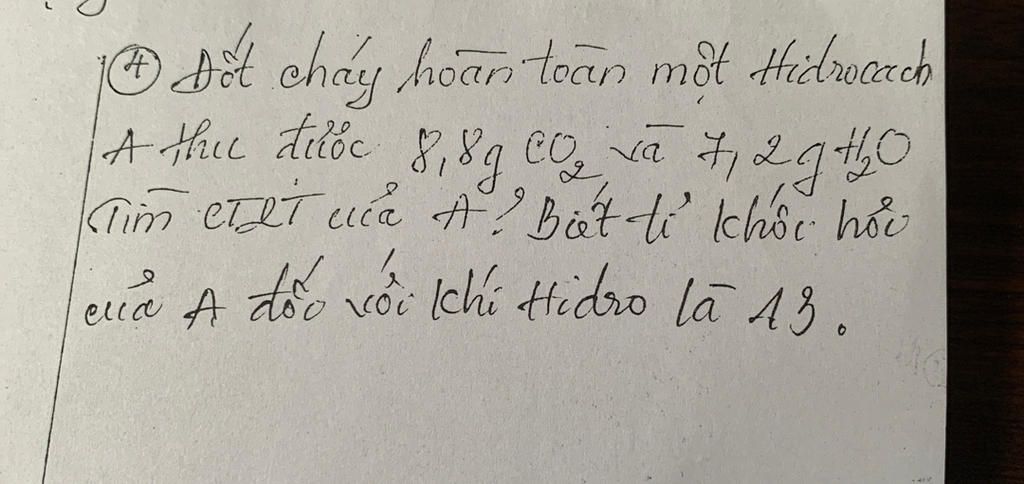 ④ Đốt cháy hoàn toàn một Hidrocacb
A thu được 8,8g CO₂ và 7,2g H₂O
Tìm CTPT của A? Biết tỉ khối hơi
của A đối với khí Hidro là 13.